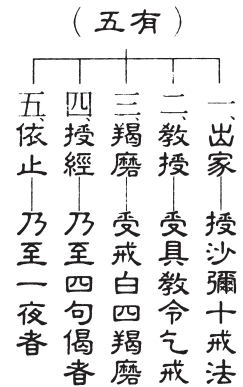 （五有）
一、出家—授沙彌十戒法
二、教授—受具教令乞戒
三、羯磨—受戒白四羯磨
四、授經—乃至四句偈者
五、依止—乃至一夜者